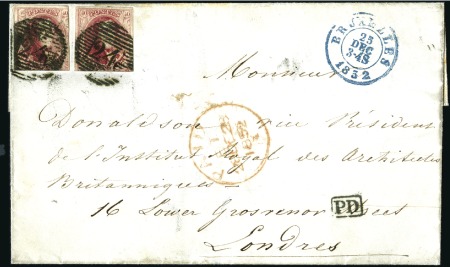 BRUXELLES
25
DEC
3-4S
1852
24
Monsieur
Donaldson vice Président
de l'Institut Royal des Architectes
Britanniques
16 Lower Grosvenor Street
PD
Londres